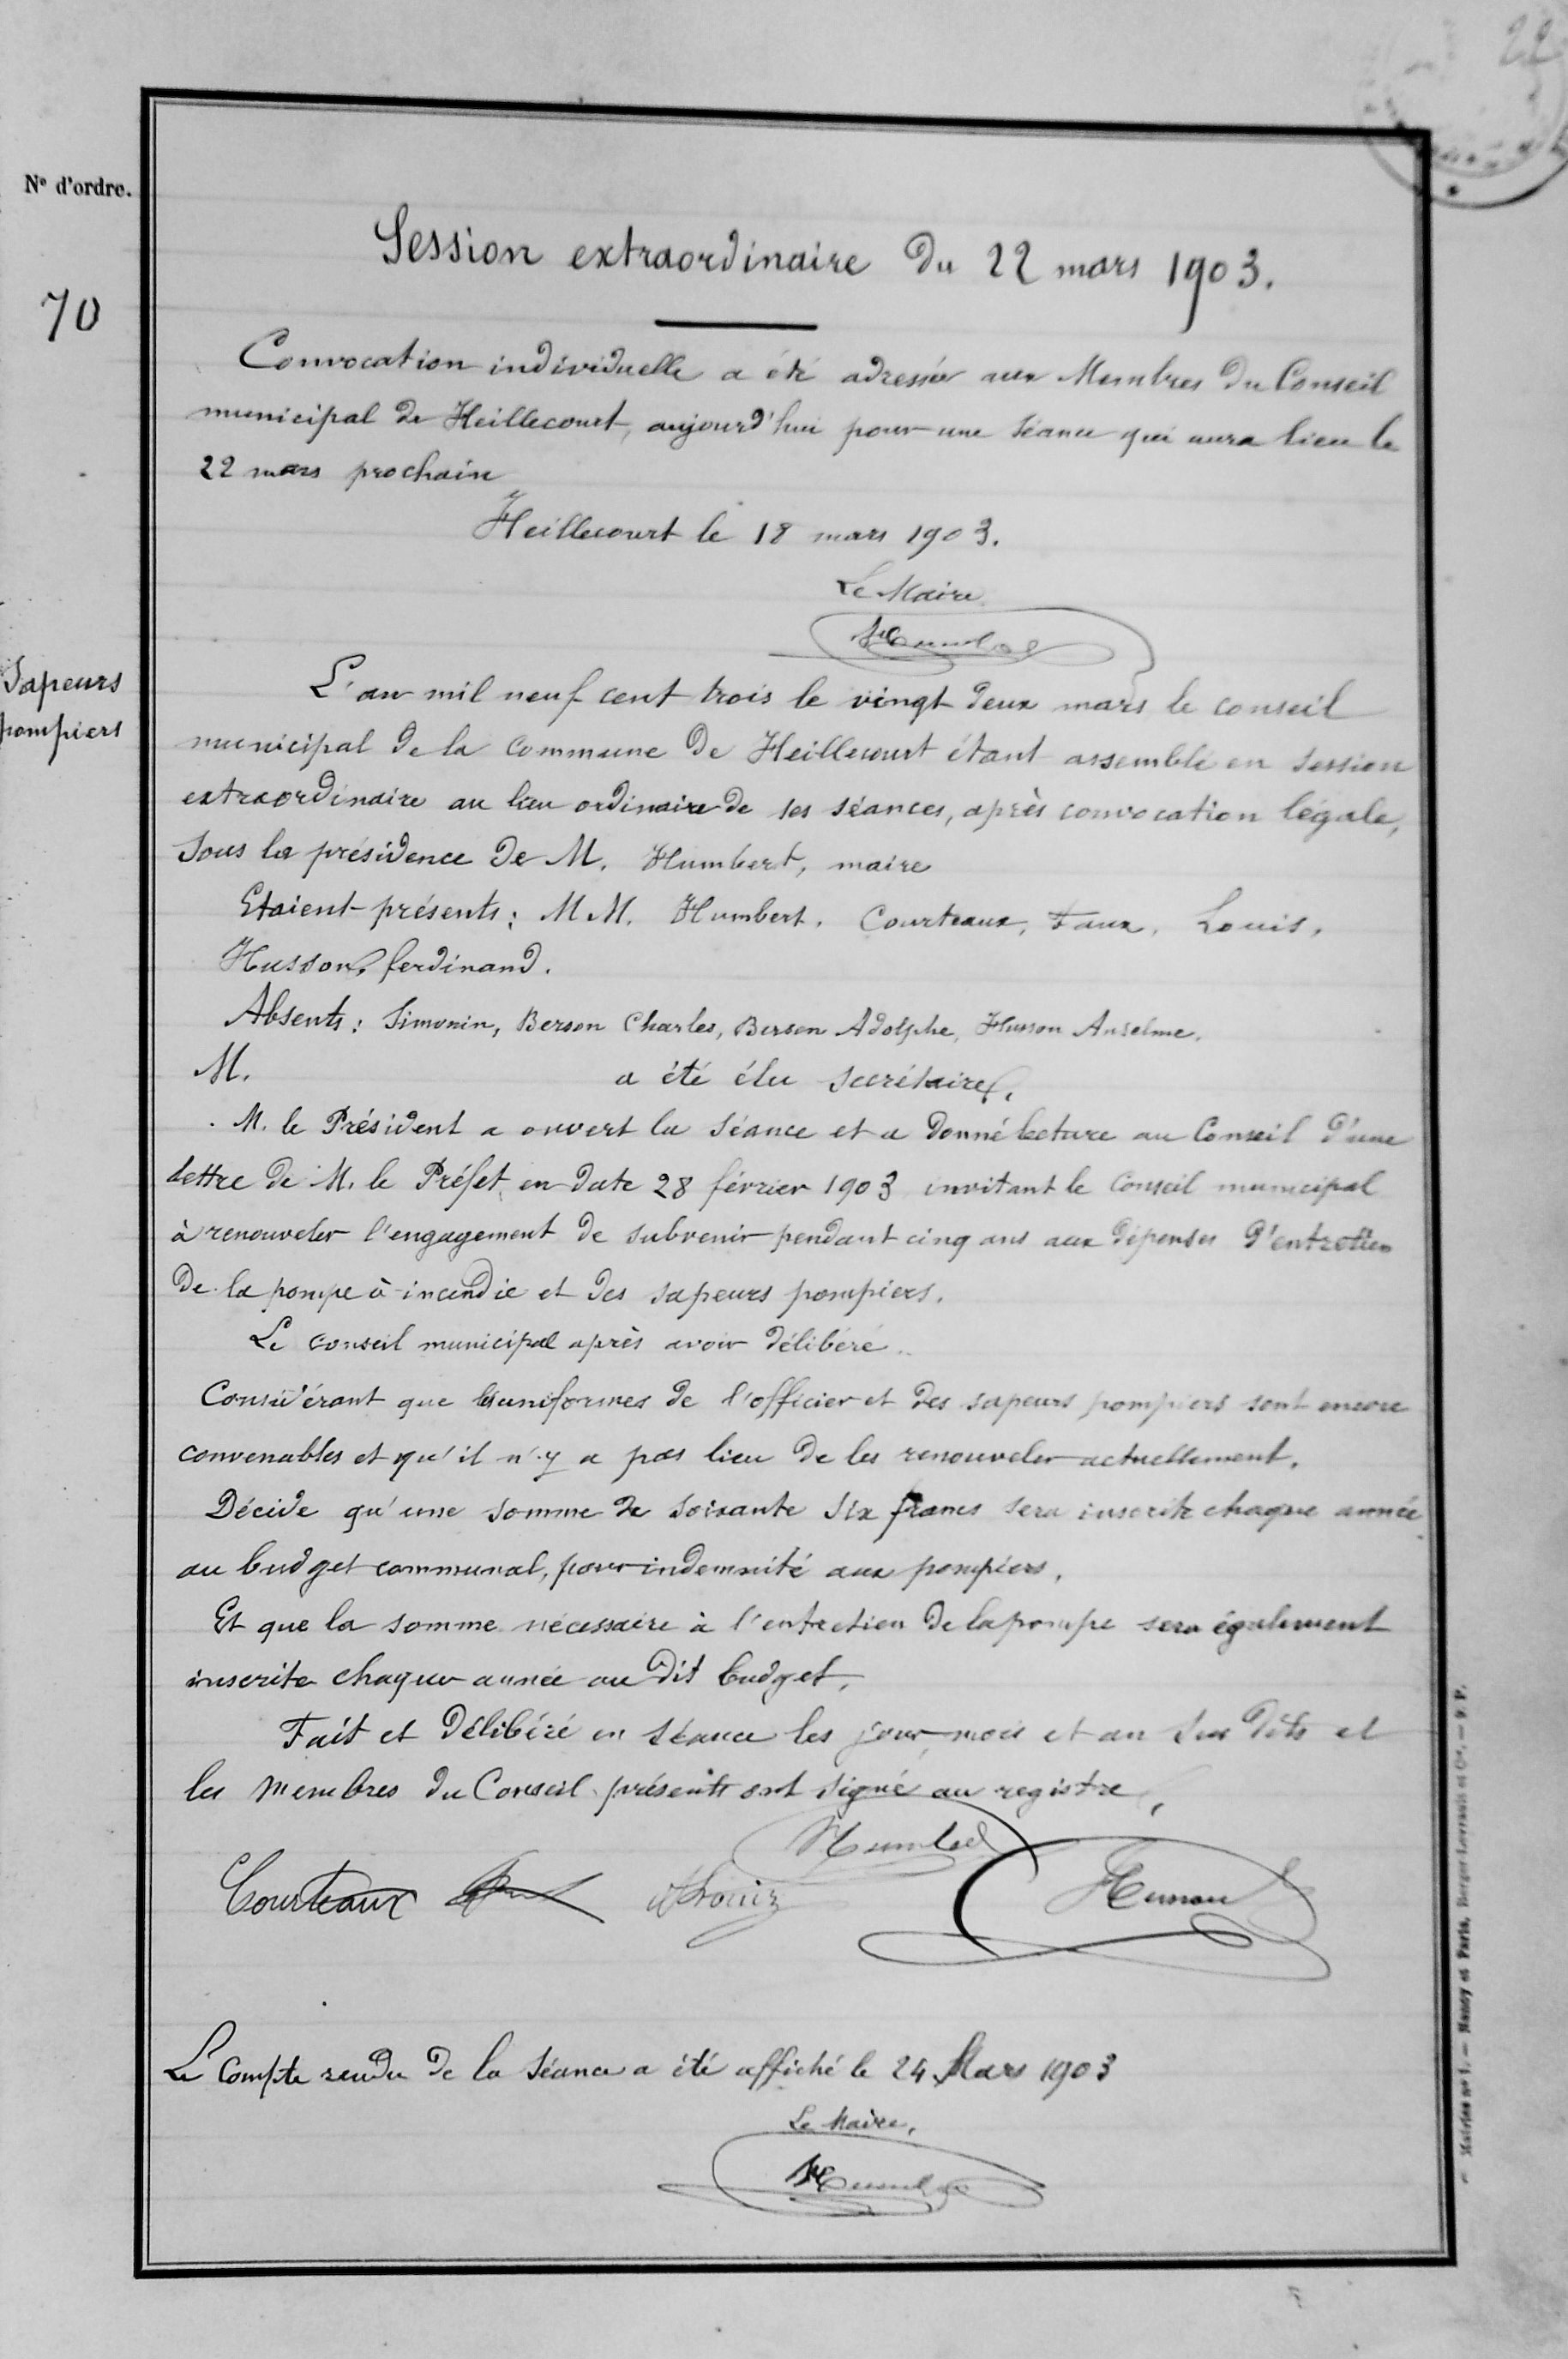 22
N° d'ordre.
Session extraordinaire du 22 mars 1903.
70
Convocation individuelle a été adressée aux Membres du Conseil
municipal de Heillecourt, aujourd'hui pour une séance qui aura lieu le
22 mars prochain
Heillecourt le 18 mars 1903.
Le Maire
Humbert
Sapeurs
pompiers
L'an mil neuf cent trois le vingt deux mars le conseil
municipal de la commune de Heillecourt étant assemblé en session
extraordinaire au lieu ordinaire de ses séances, après convocation légale,
sous la présidence de M. Humbert, maire
Etaient présents : M.M. Humbert. Courteaux, Faux, Louis,
Husson, ferdinand.
Absents : Simonin, Berson Charles, Berson Adolphe, Husson Anselme.
M. a été élu secrétaire.
M. le Président a ouvert la séance et a donné lecture au Conseil d'une
lettre de M. le Préfet, en date 28 février 1903 invitant le Conseil municipal
à renouveler l'engagement de subvenir pendant cinq ans aux dépenses d'entretien
de la pompe à incendie et des sapeurs pompiers.
Le conseil municipal après avoir délibéré
Considérant que les uniformes de l'officier et des sapeurs pompiers sont encore
convenables et qu'il n'y a pas lieu de les renouveler actuellement.
Décide qu'une somme de soixante six francs sera inscrite chaque année
au budget communal, pour indemnité aux pompiers.
Et que la somme nécessaire à l'entretien de la pompe sera également
inscrite chaque année au dit budget.
Fait et délibéré en séance les jour, mois et an sus dits et
les membres du Conseil présents ont signé au registre
Humbert
Courteaux Louis Husson
Le Compte rendu de la séance a été affiché le 24 Mars 1903
Le Maire,
Humbert
Mairies n° 1. — Nancy et Paris, Berger-Levrault et Cie. — 9 P.